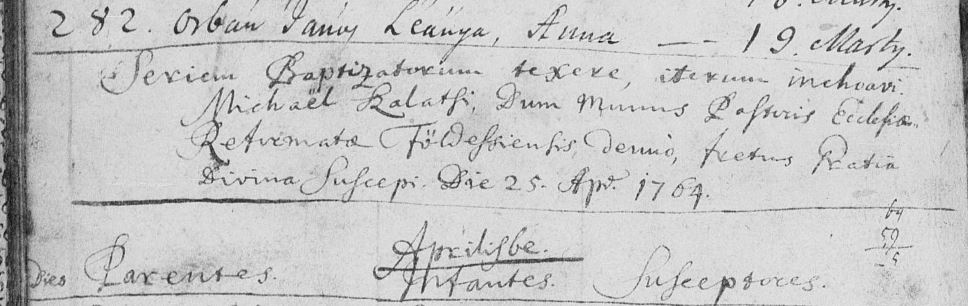 282. Orbán János Leánya, Anna — 19. Martÿ.
Seriem Baptizatorum texere, iterum inchoavi.
Michaël Kalatsi, Dum Munus Pastoris Ecclesiæ
Reformatæ Földessiensis denuò, fretus Gratia
Divina Suscepi. Die 25. Apr. 1764.
64
59
5
Aprilisbe.
Dies Parentes. Infantes. Susceptores.